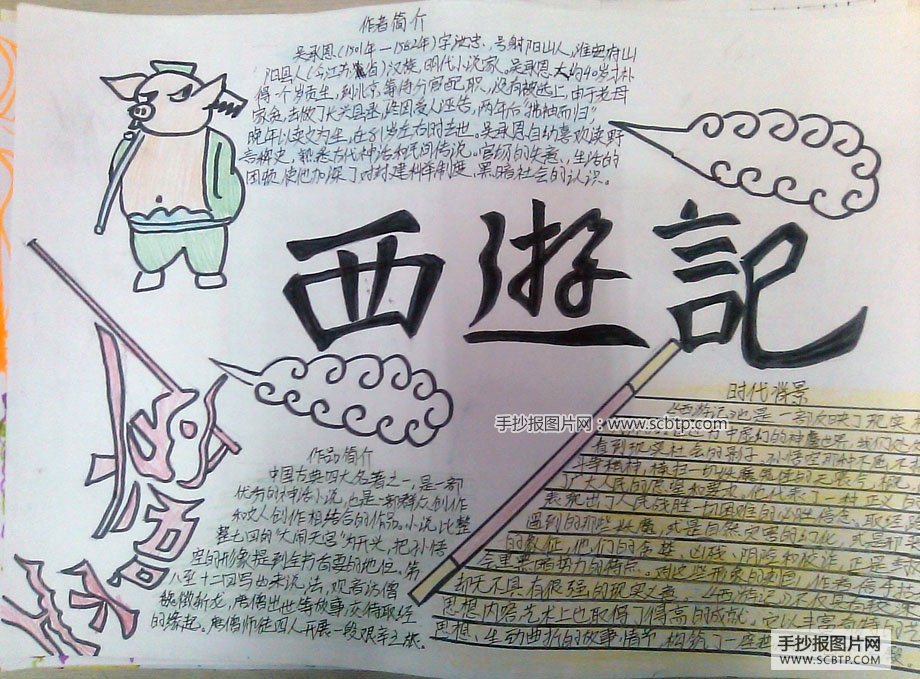 作者简介
吴承恩(1501年—1582年)字汝忠,号射阳山人,淮安府山
阳县人(今江苏省)汉族,明代小说家。吴承恩大约40岁才补
得一个岁贡生,到北京等待分配官职,没有被选上,由于
家贫,去做了长兴县丞,终因受人诬告,两年后"拂袖而归",
晚年以卖文为生,在81岁左右时去世。吴承恩自幼喜欢读野
言稗史,熟悉古代神话和民间传说。官场的失意,生活的
困顿,使他加深了对封建科举制度,黑暗社会的认识。
西遊記
作品简介
中国古典四大名著之一,是一部
优秀的神话小说,也是一部群众创作
和文人创作相结合的作品。小说以整
整七回的"大闹天宫"为开头,把孙悟
空的形象提到全书首要的地位。第
八至十二回写如来说法,观音访僧
魏徵斩龙,唐僧出世等故事,交待取经
的缘起。唐僧师徒四人开展一段艰辛之旅。
时代背景
《西游记》也是一部
广大人民的愿望和要求,他代表了一种正义
表现出了人民战胜一切困难的必胜信念,取经
遇到的那些妖魔,或是自然灾害的幻化,或是
的象征,他们的贪婪、凶残、阴险和狡诈,正是
却无不具有很强的现实意义。《西游记》不仅
思想内容艺术上也取得了很高的成就,它以丰富奇特的
思想、生动曲折的故事情节,构筑了一座
手抄报图片网
www.scbtp.com
手抄报图片网
WWW.SCBTP.COM